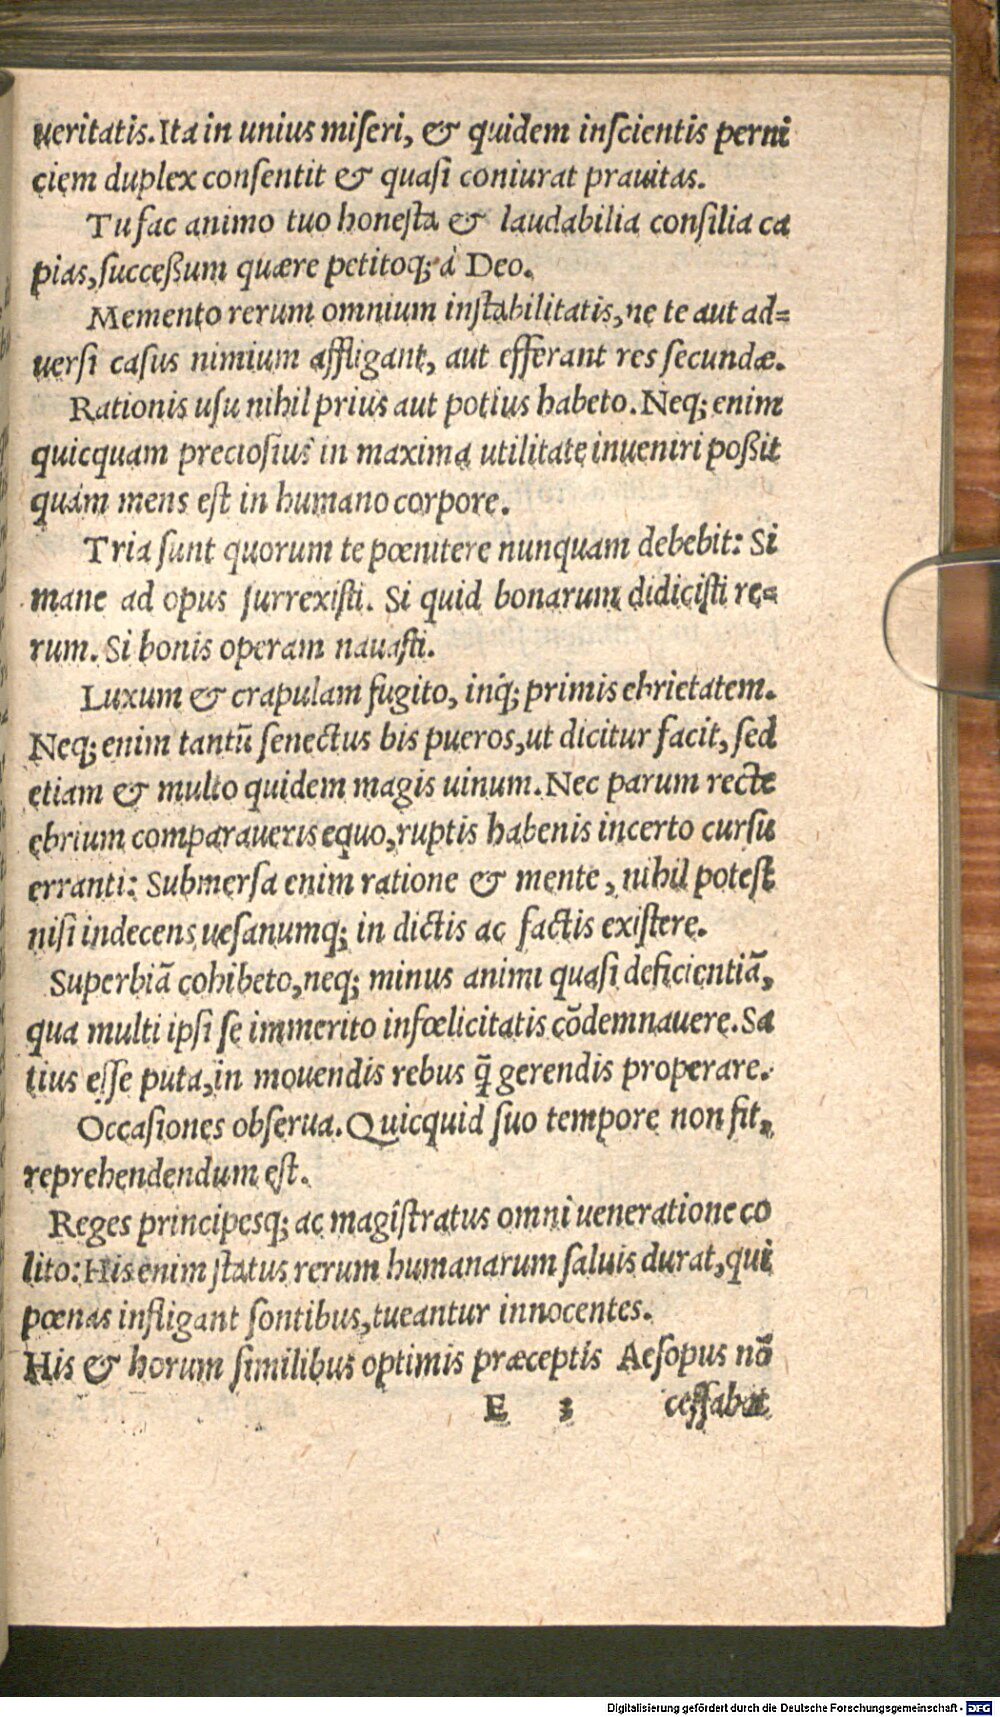 ueritatis. Ita in unius miſeri, & quidem inſcientis perni
ciem duplex conſentit & quaſi coniurat prauitas.
Tu fac animo tuo honeſta & laudabilia conſilia ca
pias, ſucceßum quære petitoq; à Deo.
Memento rerum omnium inſtabilitatis, ne te aut ad=
uerſi caſus nimium affligant, aut efferant res ſecundæ.
Rationis uſu nihil prius aut potius habeto. Neq; enim
quicquam precioſius in maxima utilitate inueniri poßit
quàm mens eſt in humano corpore.
Tria ſunt quorum te pœnitere nunquam debebit: Si
mane ad opus ſurrexiſti. Si quid bonarum didiciſti re=
rum. Si bonis operam nauaſti.
Luxum & crapulam fugito, inq; primis ebrietatem.
Neq; enim tantũ ſenectus bis pueros, ut dicitur facit, ſed
etiam & multo quidem magis uinum. Nec parum recte
ebrium comparaueris equo, ruptis habenis incerto curſu
erranti: Submerſa enim ratione & mente, nihil poteſt
niſi indecens ueſanumq; in dictis ac factis exiſtere.
Superbiã cohibeto, neq; minus animi quaſi deficientiã,
qua multi ipſi ſe immerito infœlicitatis cõdemnauere. Sa
tius eſſe puta, in mouendis rebus q̃ gerendis properare.
Occaſiones obſerua. Quicquid ſuo tempore non fit,
reprehendendum eſt.
Reges principesq; ac magiſtratus omni ueneratione co
lito: His enim ſtatus rerum humanarum ſaluis durat, qui
pœnas infligant ſontibus, tueantur innocentes.
His & horum ſimilibus optimis præceptis Aeſopus nõ
E 3 ceſſabat
Digitalisierung gefördert durch die Deutsche Forschungsgemeinschaft - DFG